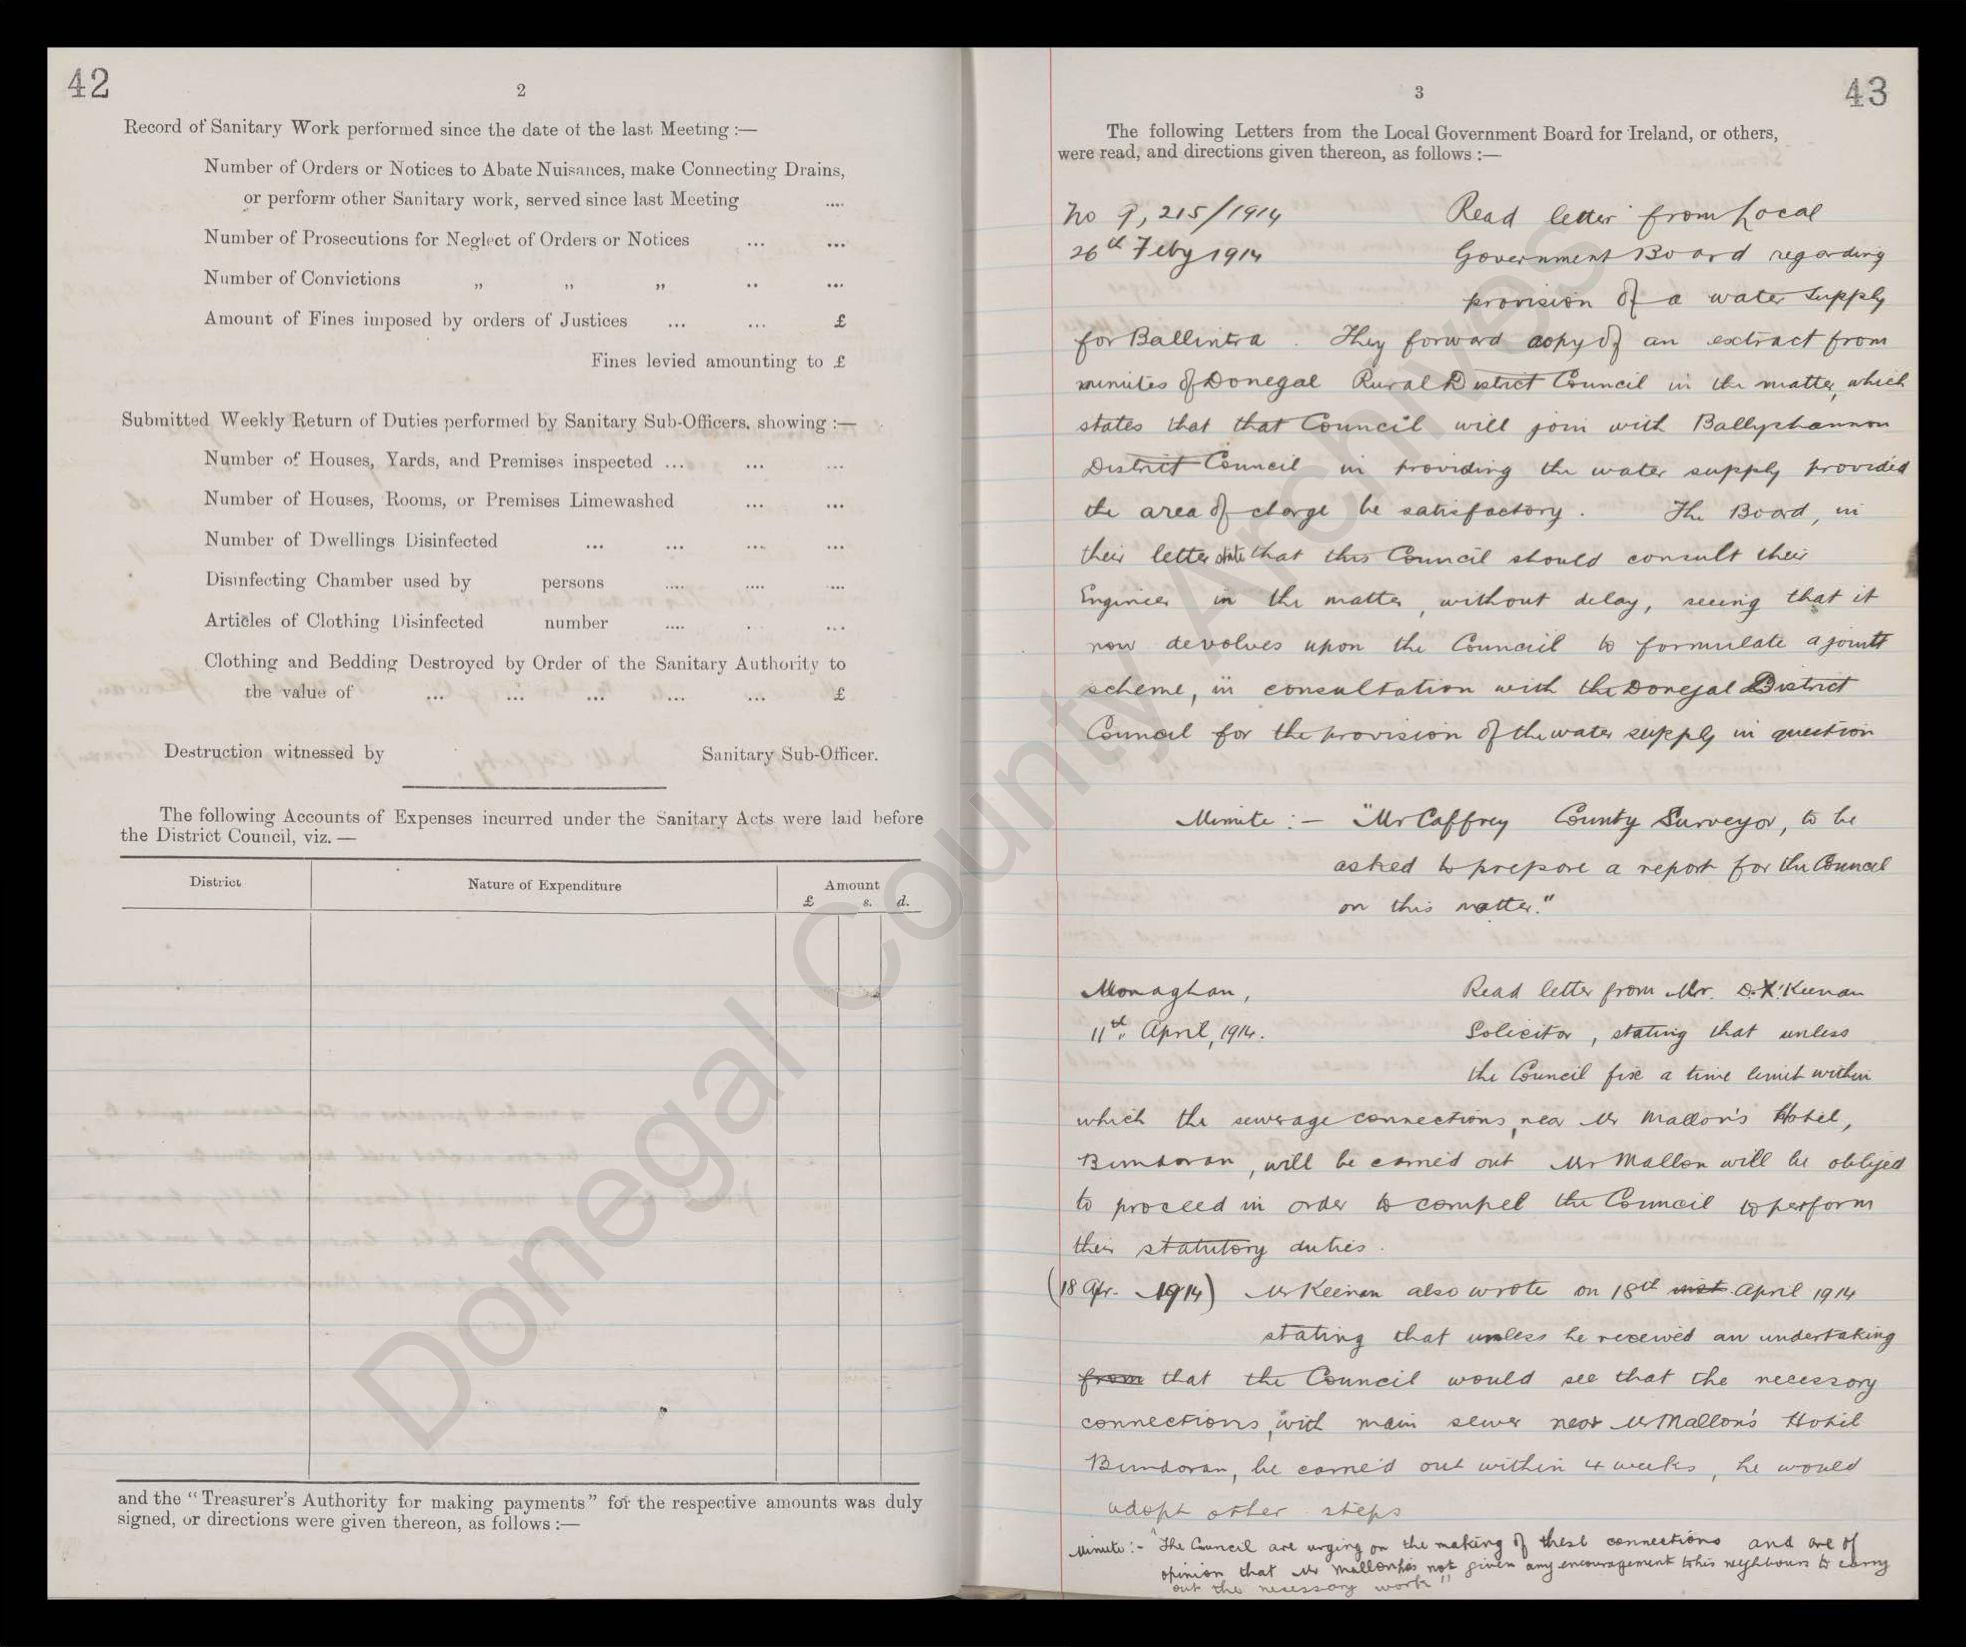 42
2
Record of Sanitary Work performed since the date of the last Meeting :—
Number of Orders or Notices to Abate Nuisances, make Connecting Drains,
or perform other Sanitary work, served since last Meeting ....
Number of Prosecutions for Neglect of Orders or Notices ... ...
Number of Convictions „ „ „ .. ...
Amount of Fines imposed by orders of Justices ... ... £
Fines levied amounting to £
Submitted Weekly Return of Duties performed by Sanitary Sub-Officers, showing :—
Number of Houses, Yards, and Premises inspected ... ... ...
Number of Houses, Rooms, or Premises Limewashed ... ...
Number of Dwellings Disinfected ... ... ... ...
Disinfecting Chamber used by persons .... .... ...
Articles of Clothing Disinfected number .... . ...
Clothing and Bedding Destroyed by Order of the Sanitary Authority to
the value of ... ... ... ... ... £
Destruction witnessed by Sanitary Sub-Officer.
The following Accounts of Expenses incurred under the Sanitary Acts were laid before
the District Council, viz. —
District Nature of Expenditure Amount
£ s. d.
and the "Treasurer's Authority for making payments" for the respective amounts was duly
signed, or directions were given thereon, as follows :—
3
43
The following Letters from the Local Government Board for Ireland, or others,
were read, and directions given thereon, as follows :—
No 9,215/1914 Read letter from Local
26th Feby 1914 Government Board regarding
provision of a water supply
for Ballintra. They forward copy of an extract from
minutes of Donegal Rural District Council in the matter, which
states that that Council will join with Ballyshannon
District Council in providing the water supply provided
the area of charge be satisfactory. The Board, in
their letter state that this Council should consult their
Engineer in the matter, without delay, seeing that it
now devolves upon the Council to formulate a joint
scheme, in consultation with the Donegal District
Council for the provision of the water supply in question
Minute :— "Mr Caffrey County Surveyor, to be
asked to prepare a report for the Council
on this matter."
Monaghan, Read letter from Mr. D.X. Keenan
11th April, 1914. Solicitor, stating that unless
the Council fix a time limit within
which the sewerage connections, near Mr Mallon's Hotel,
Bundoran, will be carried out Mr Mallon will be obliged
to proceed in order to compel the Council to perform
their statutory duties.
(18 Apr. 1914) Mr Keenan also wrote on 18th inst. April 1914
stating that unless he received an undertaking
from that the Council would see that the necessary
connections, with main sewer near Mr Mallon's Hotel
Bundoran, be carried out within 4 weeks, he would
adopt other steps
Minute :- "The Council are urging on the making of these connections and are of
opinion that Mr Mallon has not given any encouragement to his neighbours to carry
out the necessary work"
Donegal County Archives